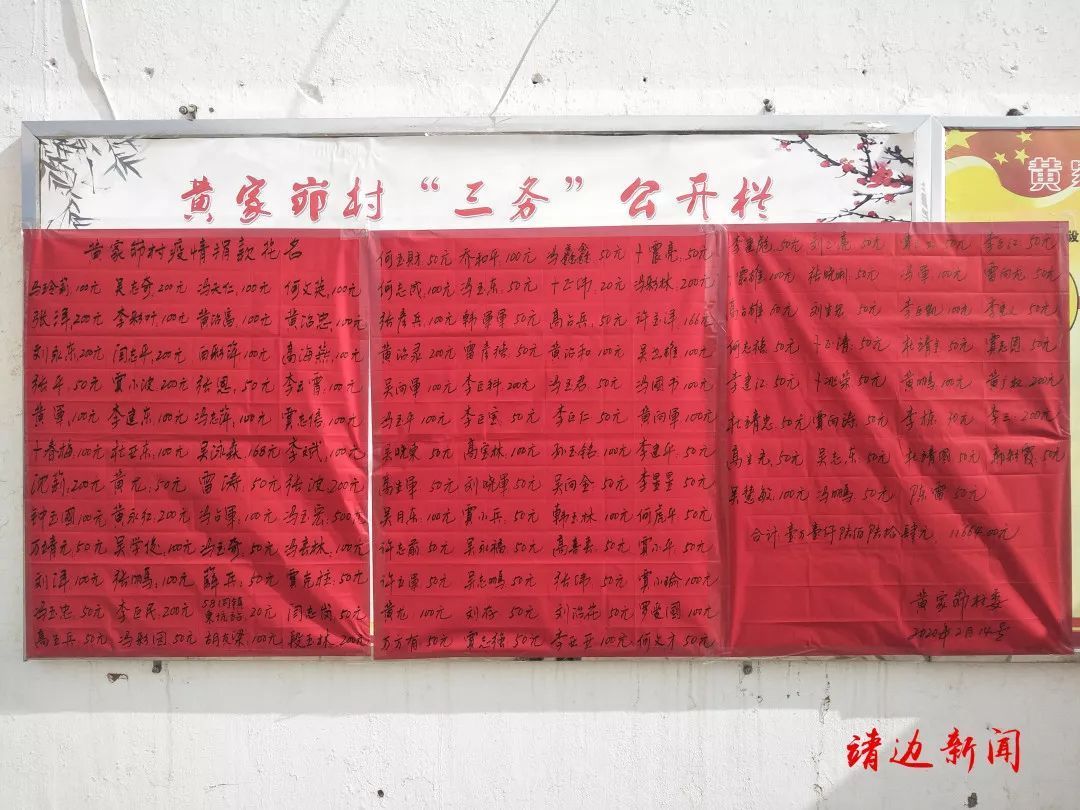 黄家峁村“三务”公开栏
黄
黄家峁村疫情捐款花名
马玲莉,100元 吴志奇,200元 冯天仁,100元 何文英,100元
张泽,200元 李彩叶,100元 黄治高,100元 黄治忠,100元
刘永东,200元 闫志平,200元 白彩萍,100元 高海燕,100元
张平,50元 贾小波,200元 张恩,50元 李玉霄,100元
黄军,100元 李建东,100元 冯志萍,100元 贾志信,100元
卜春梅,100元 杜亚东,100元 吴泳森,168元 李斌,100元
沈莉,200元 黄龙,50元 雷涛,50元 张波,200元
钟玉国,100元 黄永红,200元 冯占军,100元 冯玉宏,500元
万靖元,50元 吴学俊,100元 冯玉奇,50元 冯嘉林,100元
刘泽,100元 张鹏,100元 薛兵,50元 贾克柱,50元
冯玉忠,50元 李巨民,200元 20元 闫志岗,50元
高生兵,50元 冯彩图,50元 胡友梁,100元 段玉林,200元
何玉财,50元 乔和平,100元 冯鑫鑫,50元 卜震亮,50元
何志成,100元 冯玉东,50元 卜正伟,20元 冯彩林,200元
张彦兵,100元 韩军军,50元 高占兵,50元 许玉泽,166元
黄治录,200元 雷彦德,50元 黄治和,100元 吴志雄,100元
吴向军,100元 李巨科,200元 冯玉君,50元 冯图书,100元
冯玉平,100元 李巨宝,50元 李巨仁,50元 黄向军,100元
吴晓东,50元 高家林,100元 孙玉铭,100元 李建平,50元
高生军,50元 刘晓军,50元 吴向金,50元 李星星,50元
吴月东,100元 贾小兵,50元 韩玉林,100元 何虎平,50元
许志前,50元 吴永福,50元 高嘉嘉,50元 贾小平,50元
许玉军,50元 吴志鹏,50元 张伟,50元 贾小瑜,100元
黄龙,100元 刘存,50元 刘治花,50元 罗爱国,100元
万方有,50元 贾志强,50元 李亚亚,100元 何文才,50元
50元 刘三亮,50元 50元 李巨江,50元
100元 张晓刚,50元 冯军,100元 雷向龙,50元
高占雄,60元 刘生宏,50元 100元 50元
何志德,50元 卜正清,50元 50元 贾志国,50元
李建江,50元 50元 黄鹏,100元 200元
杜靖忠,50元 贾向涛,50元 李栋,50元 200元
高生元,50元 吴志东,50元 杜靖国,50元 50元
吴慧敏,100元 冯鹏,50元 陈雷,50元
合计:壹万壹仟陆佰陆拾肆元,11664.00元
黄家峁村委
2020年2月14号
靖边新闻